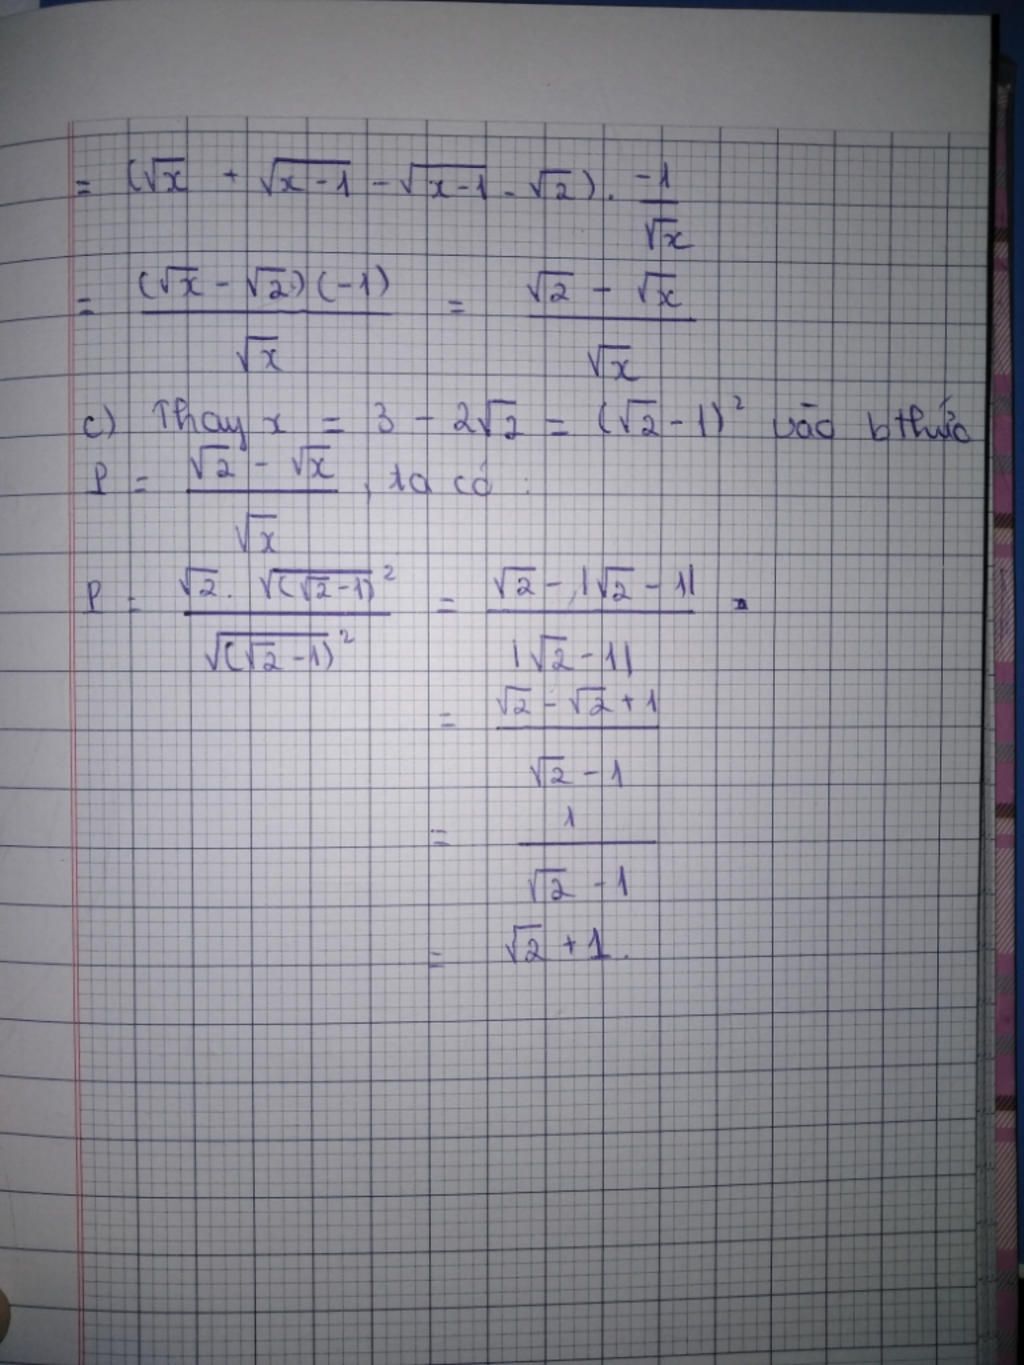 = (√x + √(x-1) - √(x-1) - √2) . -1/√x
= (√x - √2)(-1)/√x = (√2 - √x)/√x
c) Thay x = 3 - 2√2 = (√2 - 1)² vào b thức
P = (√2 - √x)/√x , ta có :
P = (√2 . √(√2-1)²)/√(√2-1)² = (√2 - |√2 - 1|)/|√2 - 1|
= (√2 - √2 + 1)/(√2 - 1)
= 1/(√2 - 1)
= √2 + 1.